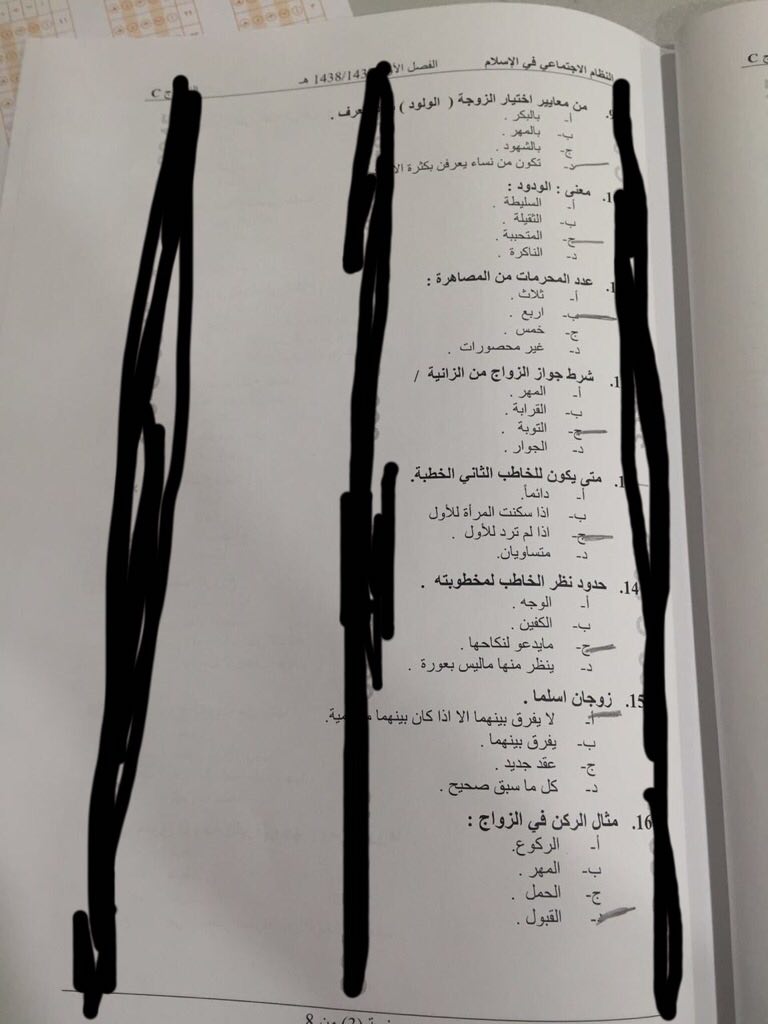 النظام الاجتماعي في الإسلام الفصل 1438/143 هـ C
من معايير اختيار الزوجة ( الولود ) .
أ- بالبكر .
ب- بالمهر .
ج- بالشهود .
د- تكون من نساء يعرفن بكثرة
معنى : الودود :
أ- السليطة .
ب- الثقيلة .
ج- المتحببة
د- الناكرة .
عدد المحرمات من المصاهرة :
أ- ثلاث .
ب- اربع .
ج- خمس .
د- غير محصورات .
شرط جواز الزواج من الزانية /
أ- المهر .
ب- القرابة .
ج- التوبة .
د- الجوار .
متى يكون للخاطب الثاني الخطبة.
أ- دائماً.
ب- اذا سكنت المرأة للأول
ج- اذا لم ترد للأول .
د- متساويان.
14. حدود نظر الخاطب لمخطوبته .
أ- الوجه .
ب- الكفين .
ج- مايدعو لنكاحها .
د- ينظر منها ماليس بعورة .
15. زوجان اسلما .
أ- لا يفرق بينهما الا اذا كان بينهما
ب- يفرق بينهما .
ج- عقد جديد .
د- كل ما سبق صحيح .
16. مثال الركن في الزواج :
أ- الركوع.
ب- المهر .
ج- الحمل .
د- القبول .
(2) من 8
C